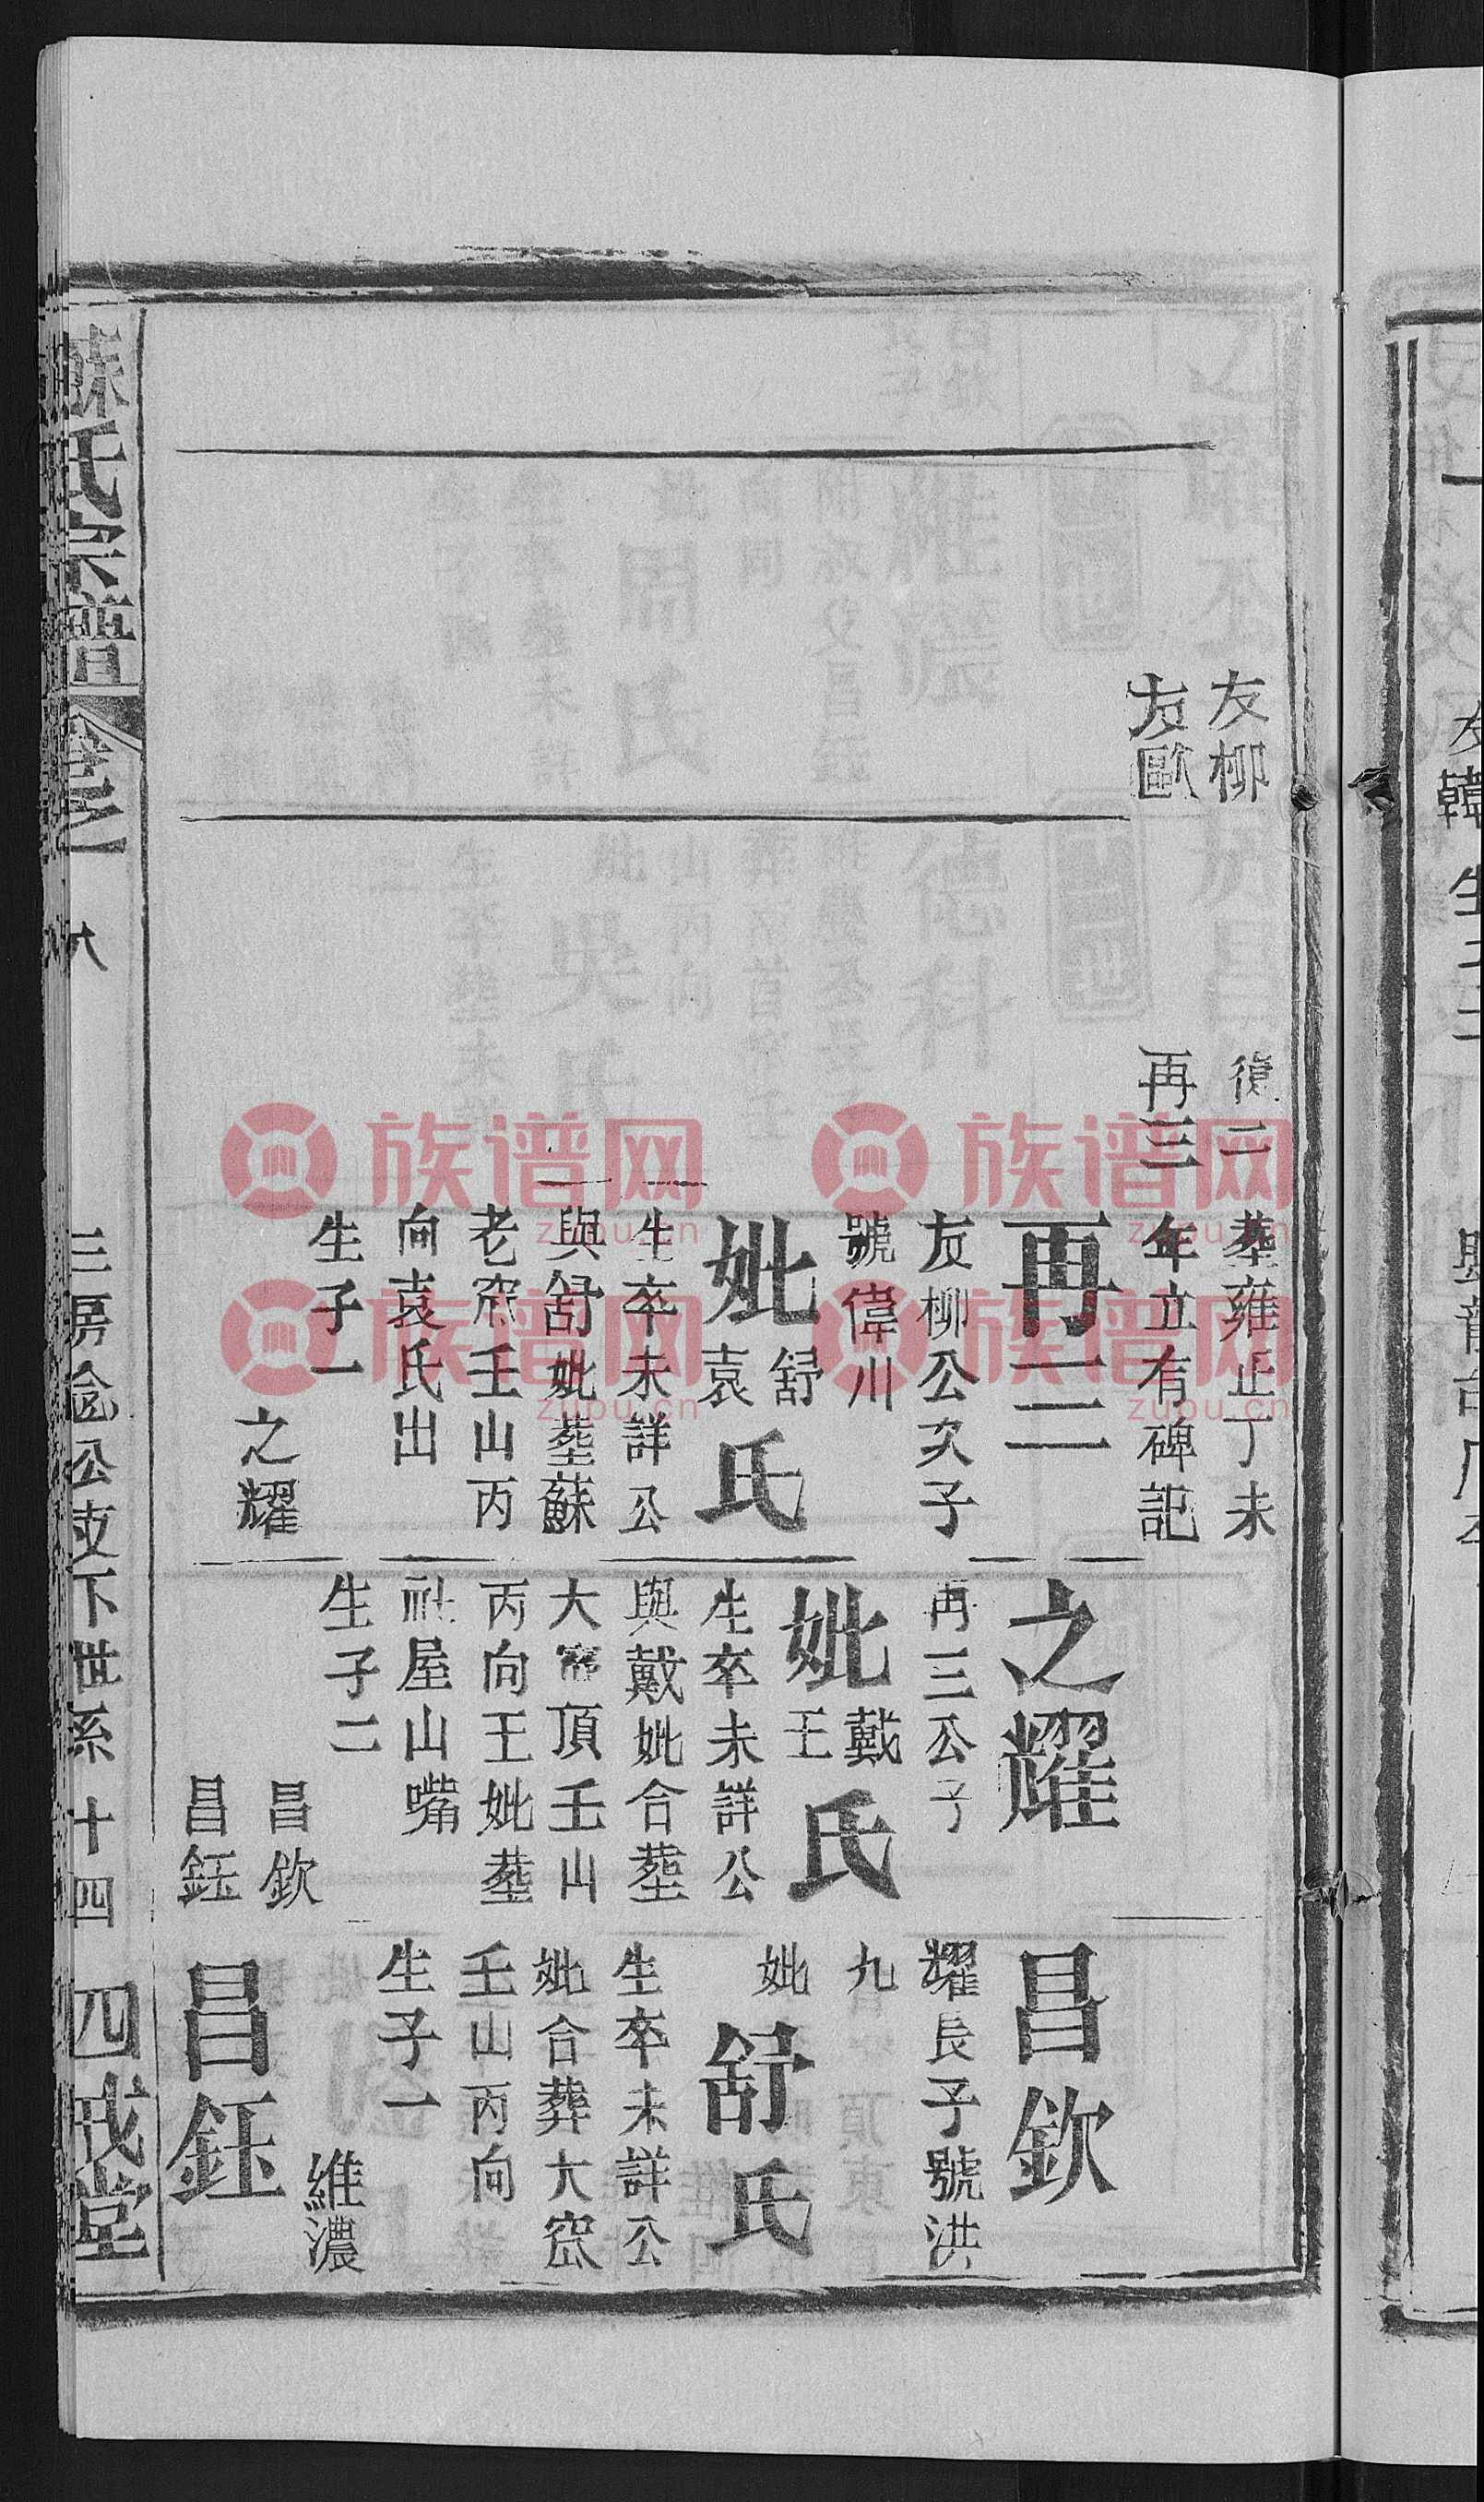 友柳
友歐
復二
再三
葬雍正丁未
年立有碑記
再三
友柳公次子
號偉川
妣舒袁氏
生卒未詳公
與舒妣葬蘇
老窯壬山丙
向袁氏出
生子一
之耀
之耀
再三公子
妣戴王氏
生卒未詳公
與戴妣合葬
大窯頂壬山
丙向王妣葬
社屋山嘴
生子二
昌欽
昌鈺
昌欽
耀長子號洪
九
妣舒氏
生卒未詳公
妣合葬大窯
壬山丙向
生子一
維濃
昌鈺
蘇氏宗譜 卷之一 八 三房念公支下世系 十四 四戒堂
族谱网
zupu.cn
族谱网
zupu.cn
族谱网
zupu.cn
族谱网
zupu.cn